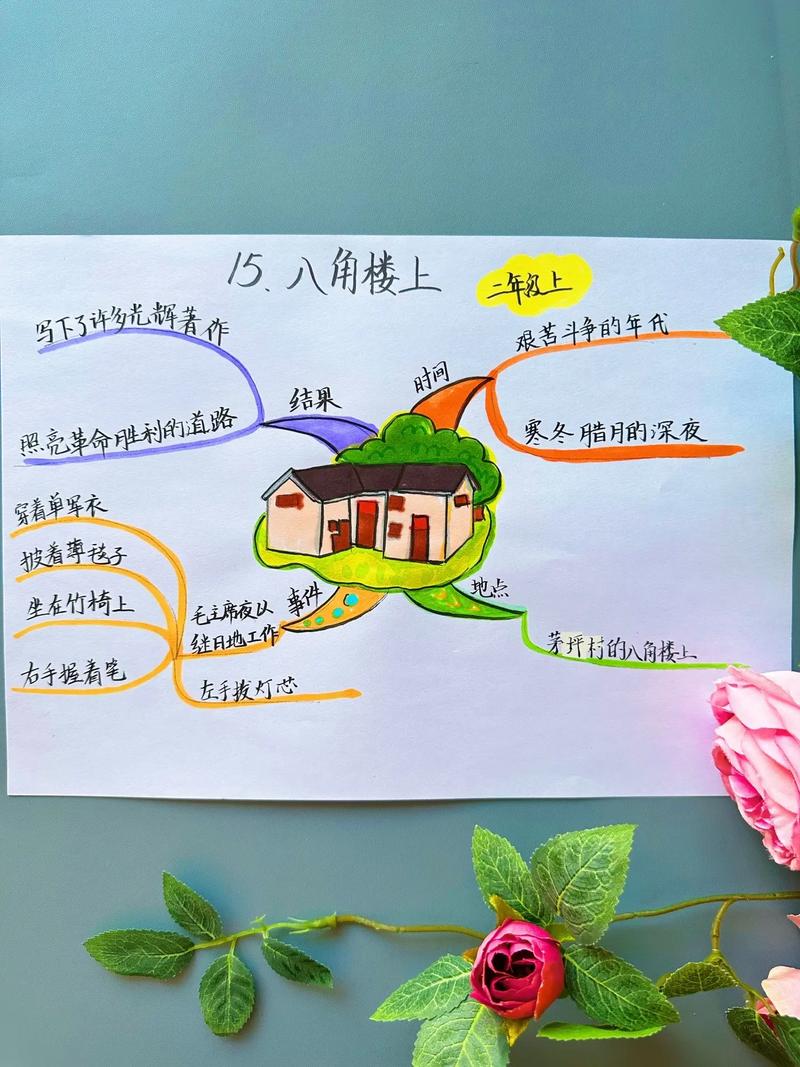 15、八角楼上
二年级上
时间
艰苦斗争的年代
寒冬腊月的深夜
地点
茅坪村的八角楼上
事件
毛主席夜以
继日地工作
穿着单军衣
披着薄毯子
坐在竹椅上
右手握着笔
左手拨灯芯
结果
写下了许多光辉著作
照亮革命胜利的道路